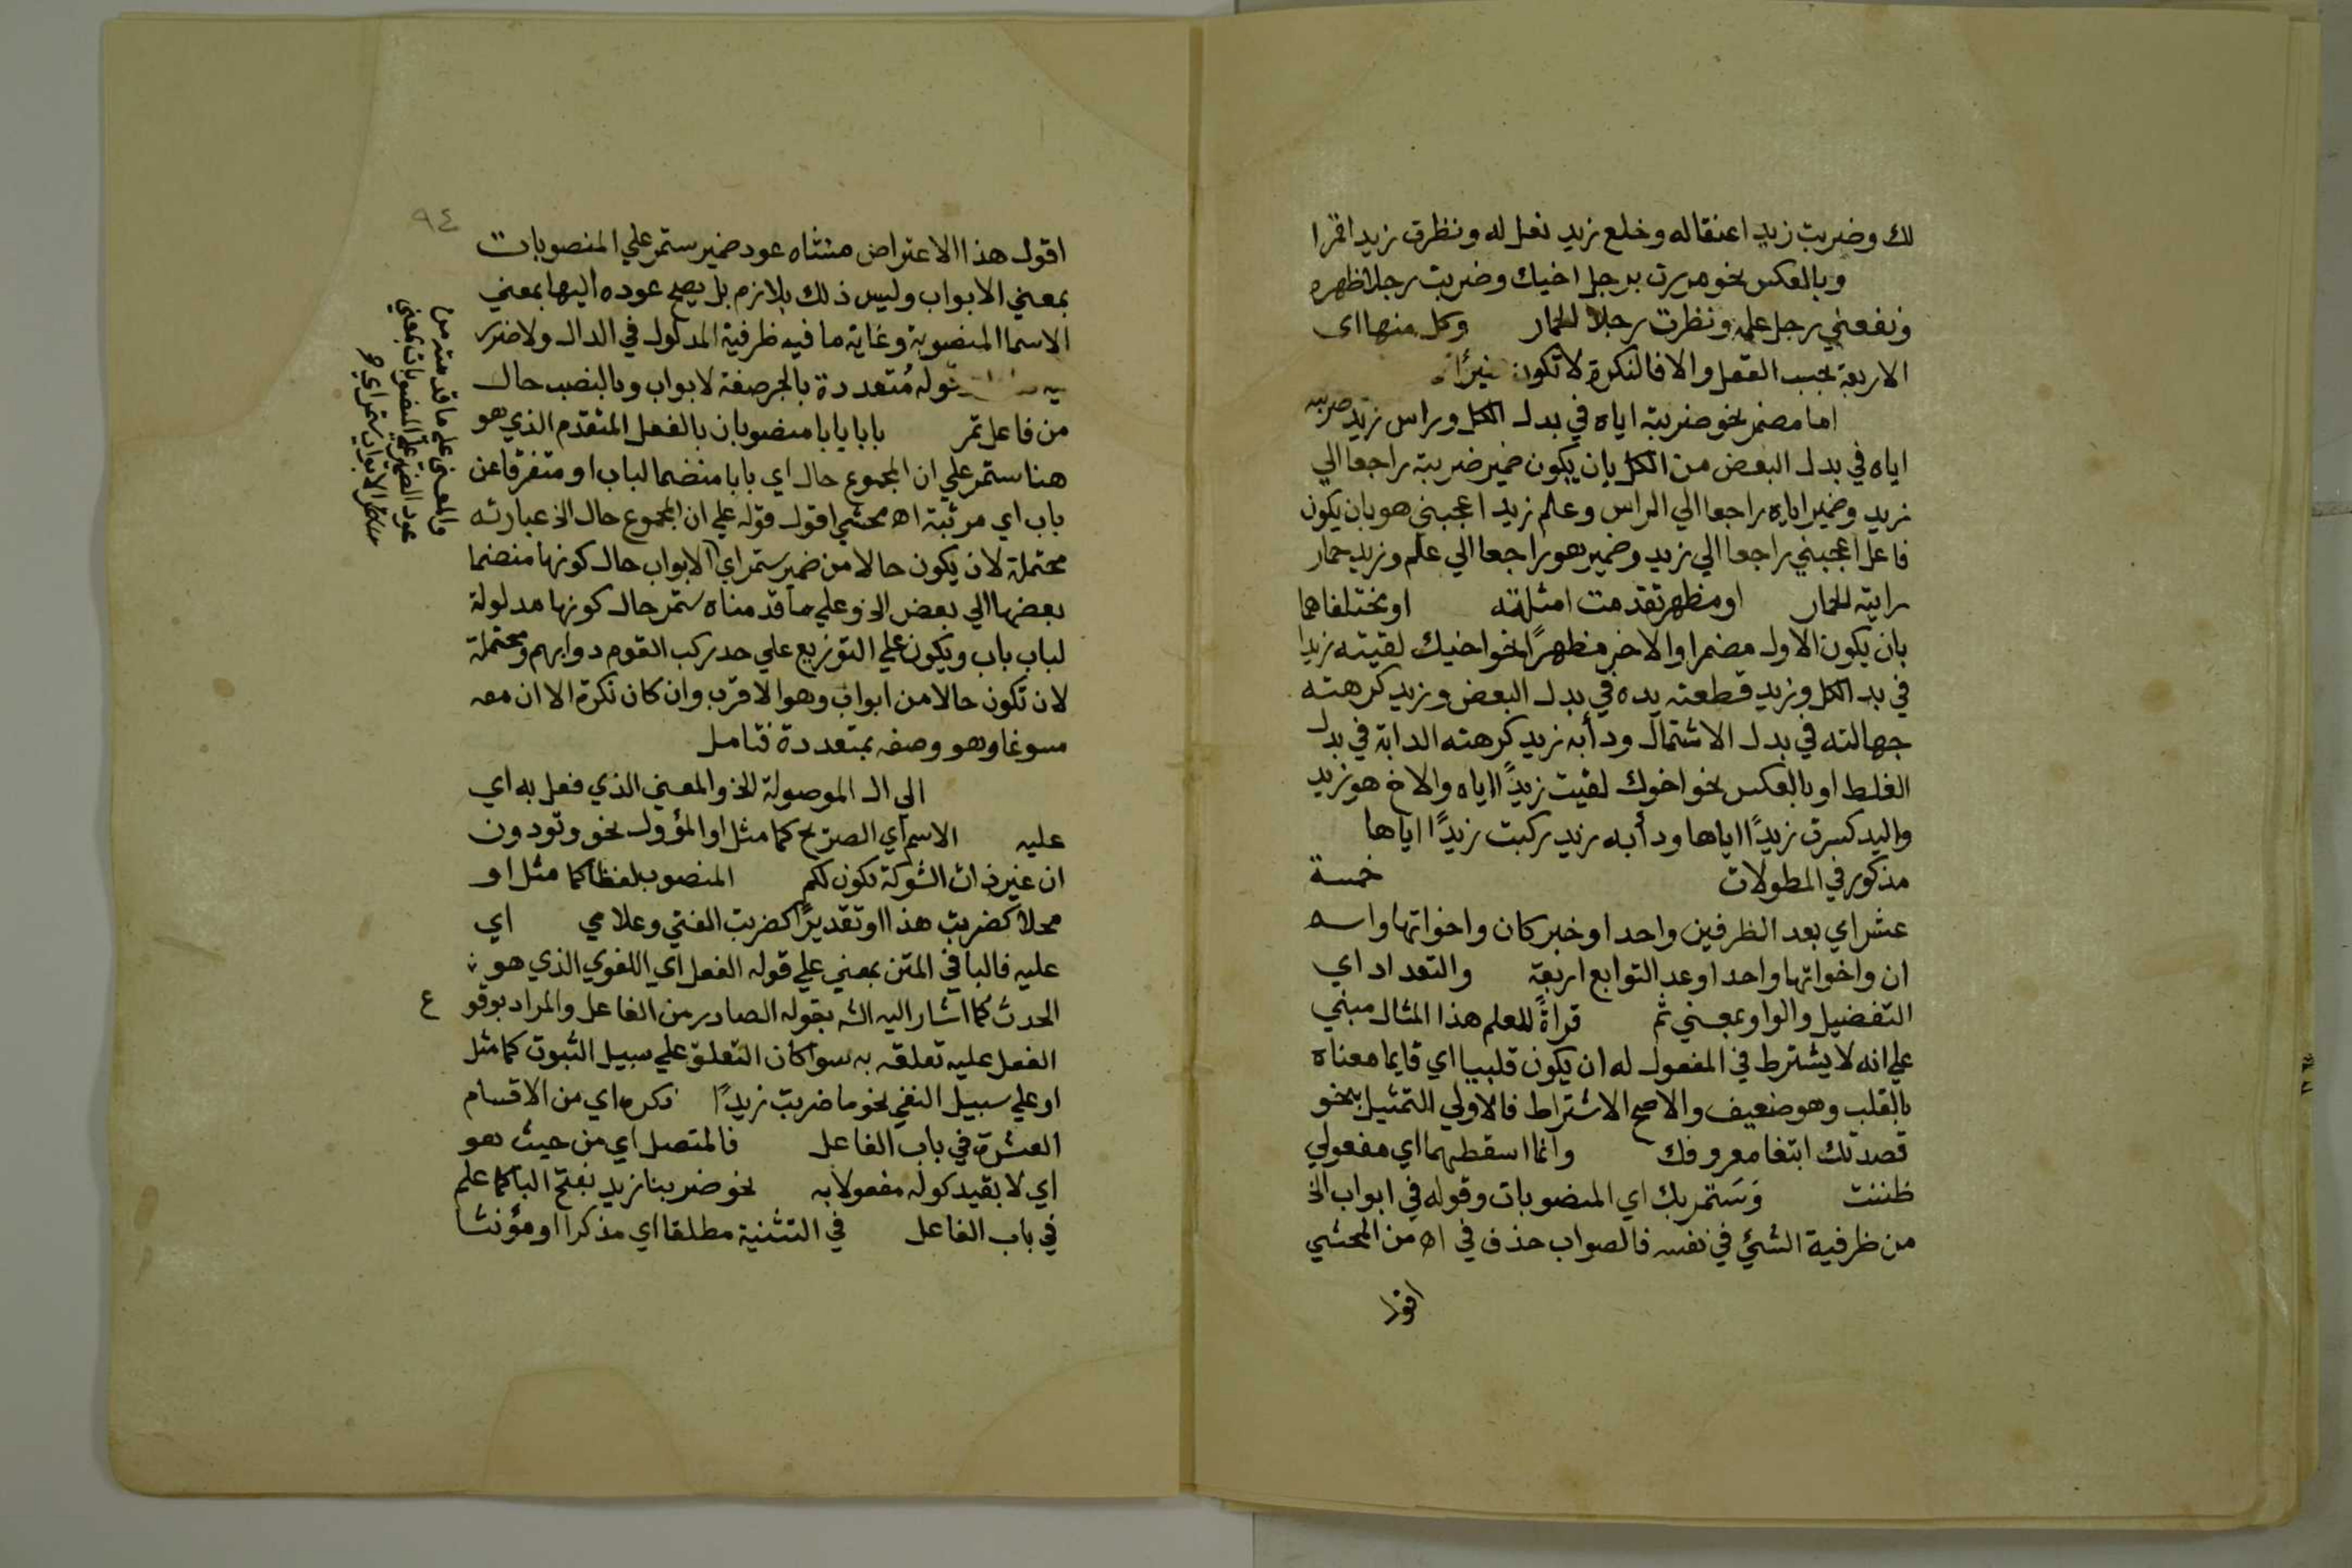 لك وضربت زيد اعنقاله وخلع زيد نعل له ونظرت زيد اقمرا
وبالعكس نحو مررت برجل اخيك وضربت رجلا ظهره
ونفعني رجل علمه ونظرت رجلا الحمار وكل منها اى
الاربعة بحسب العقل والا فالنكرة لا تكون
اما مضمر نحو ضربته اياه في بدل الكل وراس زيد ضربته
اياه في بدل البعض من الكل بان يكون ضمير ضربته راجعا الي
زيد وضمير اياه راجعا الي الراس وعلم زيد اعجبني هو بان يكون
فاعل اعجبني راجعا الي زيد وضمير هو راجعا الي علم وزيد حمار
رايته الحمار او مظهر تقدمت امثلته او مختلفاهما
بان يكون الاول مضمرا والاخر مظهرًا نحو اخيك لقيته زيدا
في بد الكل وزيد قطعته يده في بدل البعض وزيد كرهته
جهالته في بدل الاشتمال ودأبه زيد كرهته الدابة في بدل
الغلط او بالعكس نحو اخوك لقيت زيدًا اياه والاخ هو زيد
واليد كسرت زيدًا اياها ودأبه زيد ركبت زيدًا اياها
مذكور في المطولات خمسة
عشر اي بعد الظرفين واحدا وخبر كان واخواتها واسم
ان واخواتها واحدا وعد التوابع اربعة والتعداد اي
التفضيل والواو بمعني ثم قراةً للعلم هذا المثال مبني
علي انه لا يشترط في المفعول له ان يكون قلبيا اي قايما معناه
بالقلب وهو ضعيف والاصح الاشتراط فالاولي التمثيل بنحو
قصدتك ابتغا معروفك وانما اسقطهما اي مفعولي
ظننت وَسَتمر بك اي المنصوبات وقوله في ابواب الخ
من ظرفية الشئ في نفسه فالصواب حذف في اه من المحشي
اقول
٩٤
اقول هذا الاعتراض منشاه عود ضمير ستمر علي المنصوبات
بمعني الابواب وليس ذلك بلازم بل يصح عوده اليها بمعني
الاسما المنصوبة وغاية ما فيه ظرفية المدلول في الدال ولا ضرر
قوله مُتعددة بالجر صفة لابواب وبالنصب حال
من فاعل تمر بابا بابا منصوبان بالفعل المتقدم الذي هو
هنا ستمر علي ان المجموع حال اي بابا منضما لباب او متفرقا عن
باب اي مرتبة اه محشي اقول قوله علي ان المجموع حال الخ عبارته
محتملة لان يكون حالا من ضمير ستمر اي الابواب حال كونها منضما
بعضها الي بعض الخ وعلي ما قدمناه ستمر حال كونها مدلولة
لباب باب ويكون علي التوزيع علي حد ركب القوم دوابهم ومحتملة
لان تكون حالا من ابواب وهو الاقرب وان كان نكرة الا ان معه
مسوغا وهو وصفه بمتعددة فتامل
الي ال الموصولة الخ والمعني الذي فعل به اي
عليه الاسم اي الصريح كما مثل او المؤول نحو وتودون
ان غير ذات الشوكة تكون لكم المنصوب لفظا كما مثل او
محلا كضربت هذا او تقديرًا كضربت الفتي وغلامي اي
عليه فالبا في المتن بمعني علي قوله الفعل اي اللغوي الذي هو
الحدث كما اشار اليه الشه بقوله الصادر من الفاعل والمراد بوقو ع
الفعل عليه تعلقه به سوا كان التعلق علي سبيل الثبوت كما مثل
او علي سبيل النفي نحو ما ضربت زيدًا ذكره اي من الاقسام
العشرة في باب الفاعل فالمتصل اي من حيث هو
اي لا بقيد كونه مفعولا به نحو ضربنا زيد بفتح البا كما علم
في باب الفاعل في التثنية مطلقا اي مذكرا او مؤنثا
والمعني علي ما قدمته من
عود الضمير علي المنصوبات بمعني
الابواب ستمر اي